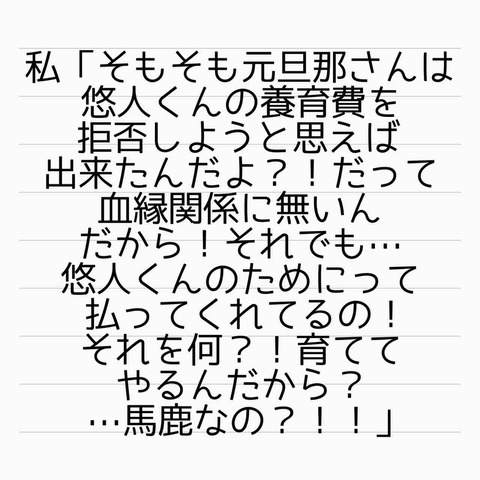 私「そもそも元旦那さんは
悠人くんの養育費を
拒否しようと思えば
出来たんだよ？！だって
血縁関係に無いん
だから！それでも…
悠人くんのためにって
払ってくれてるの！
それを何？！育てて
やるんだから？
…馬鹿なの？！！」